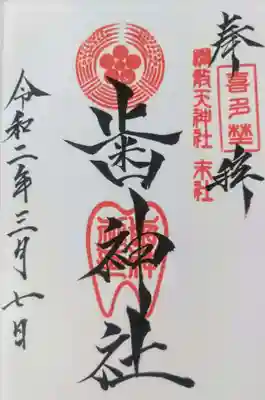 奉拝
喜多埜
綱敷天神社 末社
歯神社
歯神社
令和二年三月七日